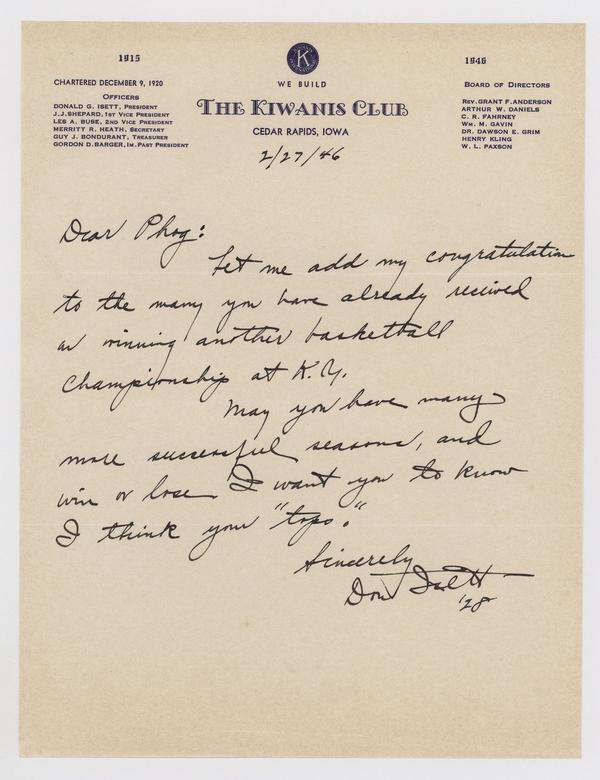 1915
1946
K
WE BUILD
THE KIWANIS CLUB
CEDAR RAPIDS, IOWA
CHARTERED DECEMBER 9, 1920
OFFICERS
DONALD G. ISETT, PRESIDENT
J. J. SHEPARD, 1ST VICE PRESIDENT
LES A. BUSE, 2ND VICE PRESIDENT
MERRITT R. HEATH, SECRETARY
GUY J. BONDURANT, TREASURER
GORDON D. BARGER, IM. PAST PRESIDENT
BOARD OF DIRECTORS
REV. GRANT F. ANDERSON
ARTHUR W. DANIELS
C. R. FAHRNEY
WM. M. GAVIN
DR. DAWSON E. GRIM
HENRY KLING
W. L. PAXSON
2/27/46
Dear Phog:
Let me add my congratulation
to the many you have already received
on winning another basketball
championship at K.U.
May you have many
more successful seasons, and
win or lose I want you to know
I think your "tops."
Sincerely
Don Isett
'28